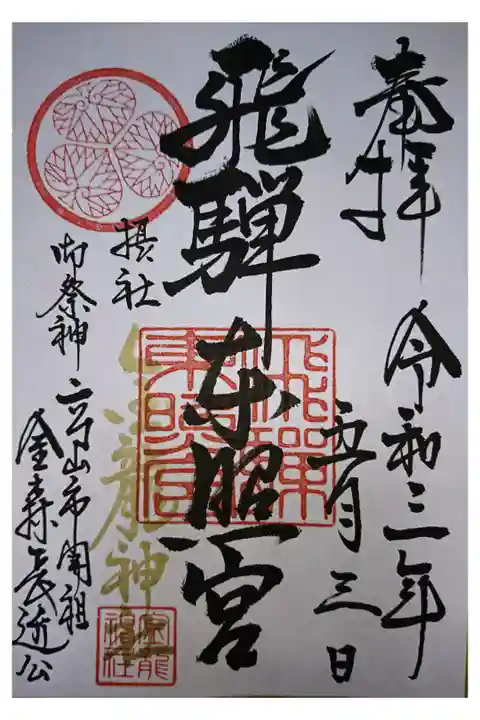 奉拝
令和三年
五月三日
飛騨東照宮
飛騨東照宮
摂社
金龍神社
御祭神 高山市開祖
金森長近公
金龍神社